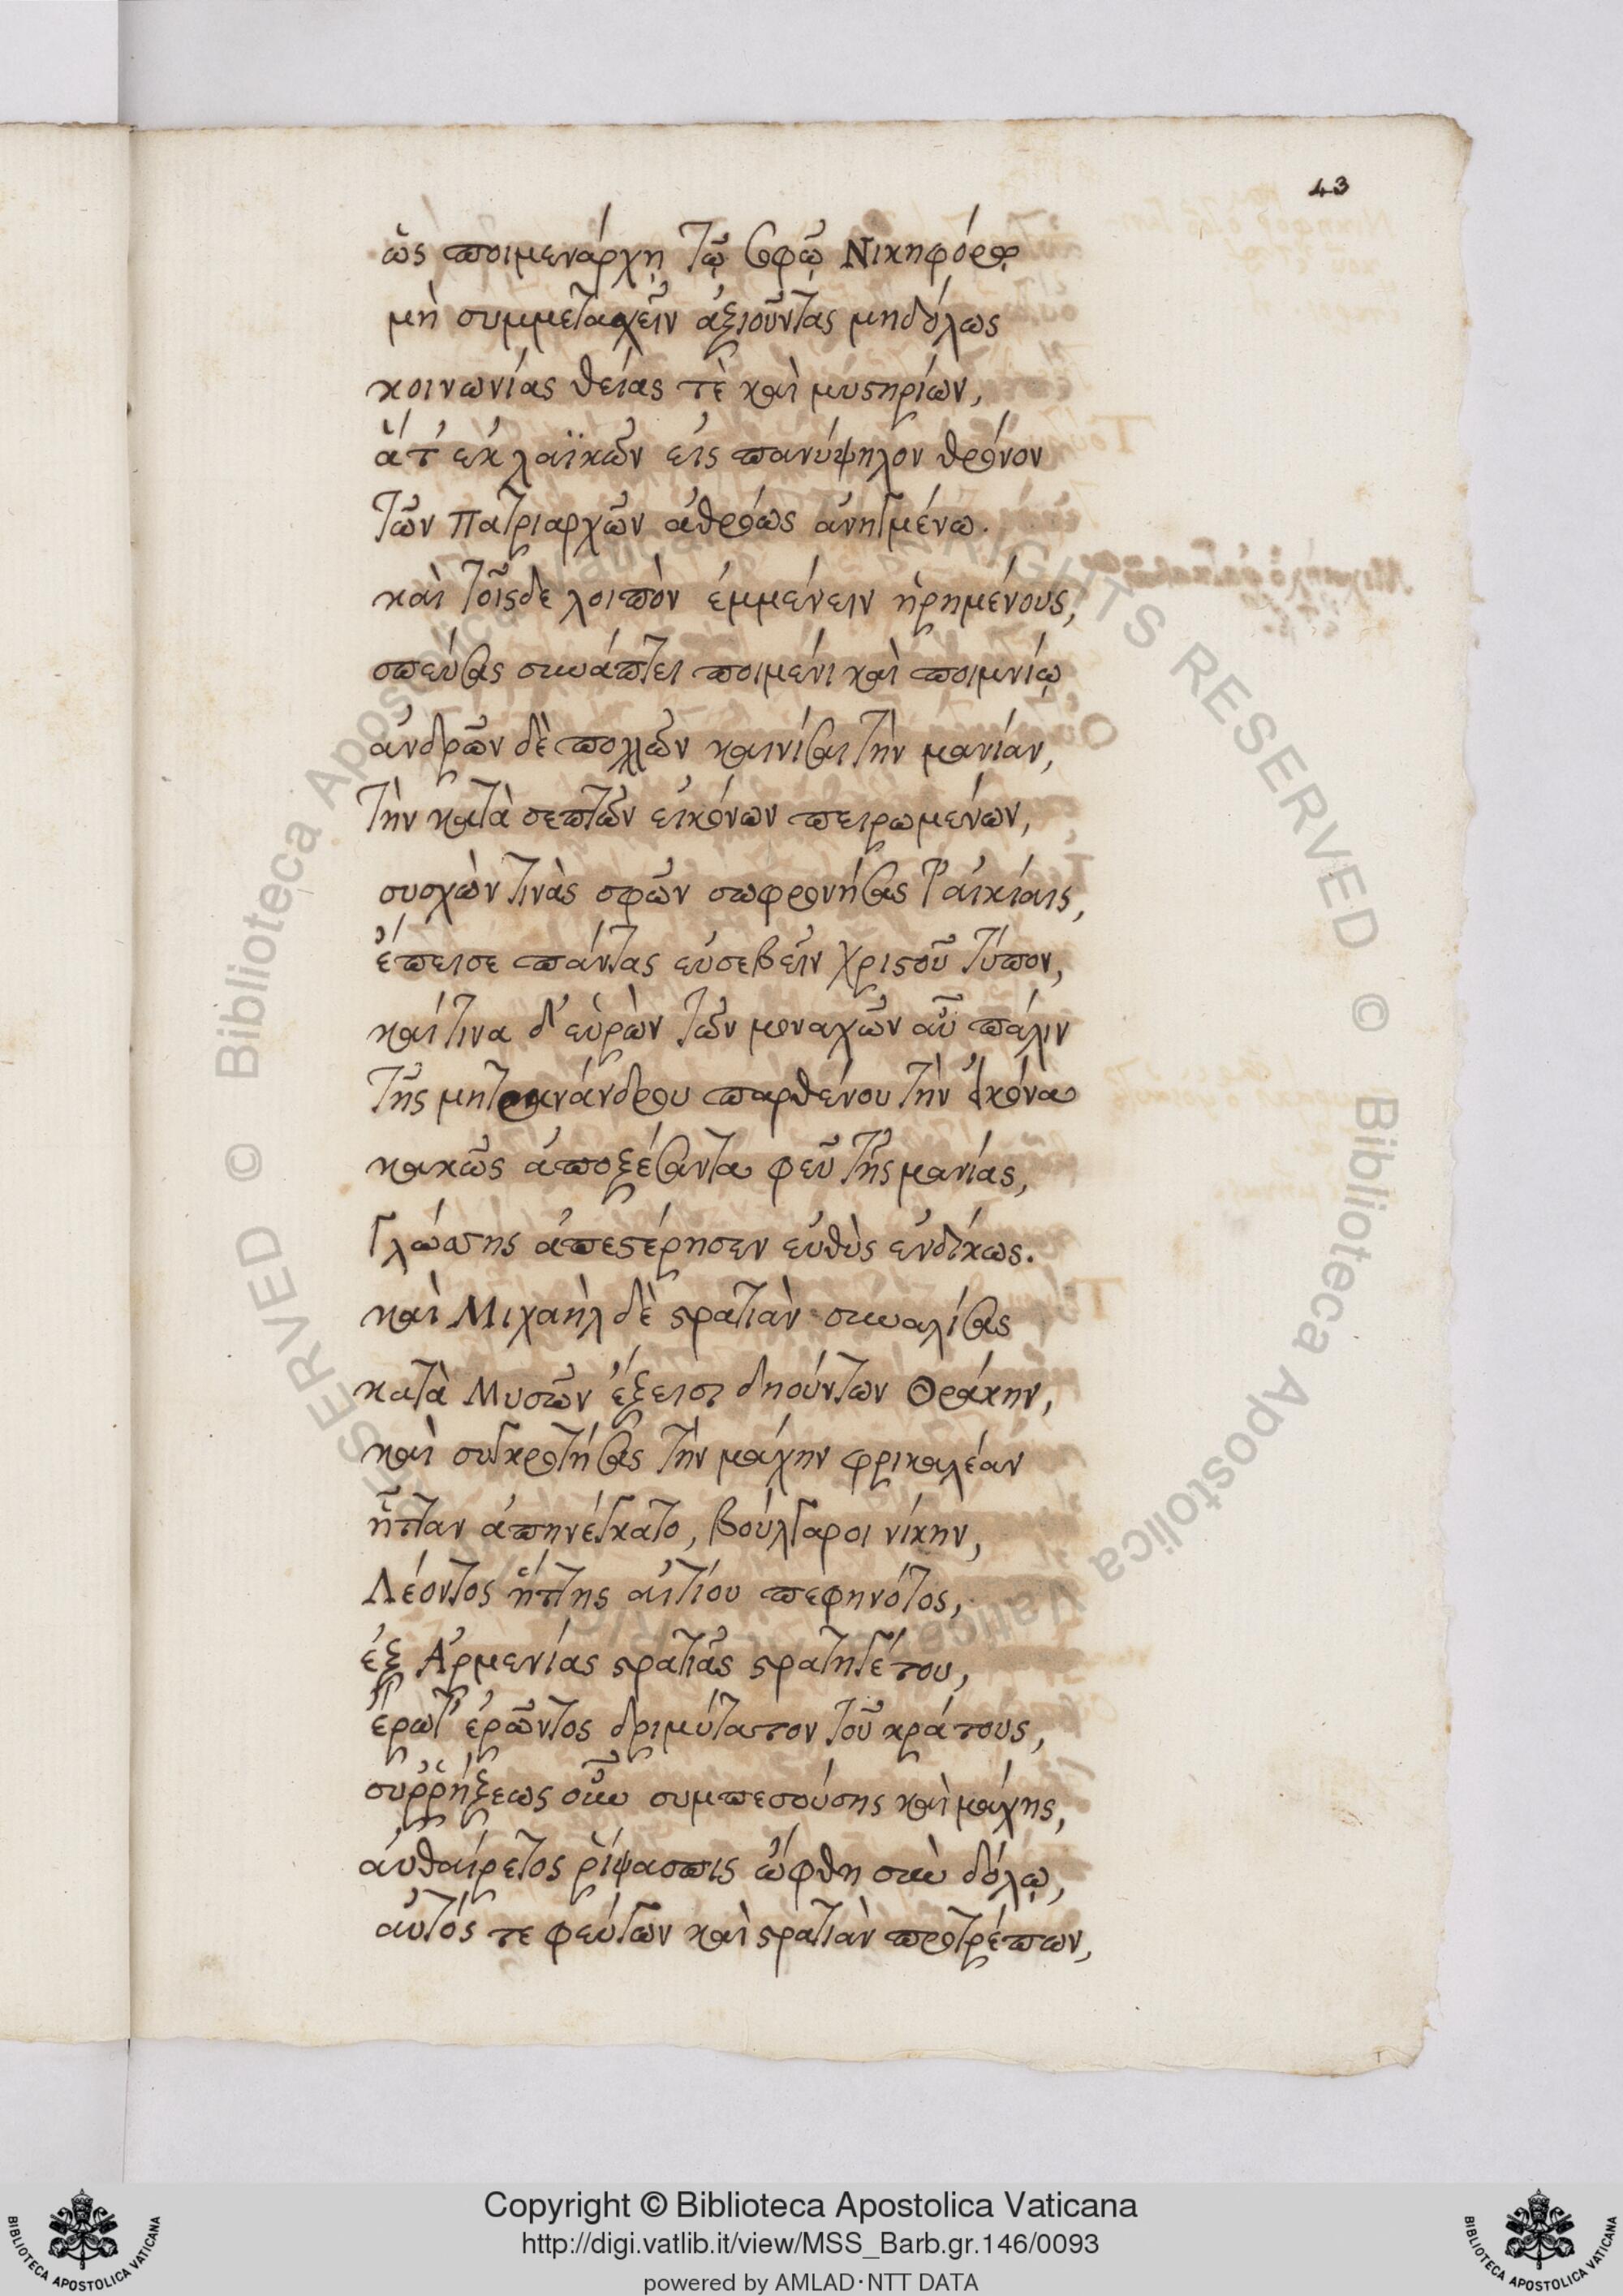 43
ὡς ποιμενάρχῃ τῷ σοφῷ Νικηφόρῳ
μὴ συμμετασχεῖν ἀξιοῦντας μηδόλως
κοινωνίας θείας τὲ καὶ μυστηρίων,
ἅτ' ἐκ λαϊκῶν εἰς πανύψηλον θρόνον
τῶν πατριαρχῶν ἀθρόως ἀνηγμένω.
καὶ τοῖςδε λοιπὸν ἐμμένειν ᾑρημένους,
σπεύσας συνάπτει ποιμένι καὶ ποιμνίῳ
ἀνδρῶν δὲ πολλῶν καινίσαι τὴν μανίαν,
τὴν κατὰ σεπτῶν εἰκόνων πειρωμένων,
συσχὼν τινὰς σφῶν σωφρονήσας τ' αἰκίαις,
ἔπεισε πάντας εὐσεβεῖν χριστοῦ τύπον,
καί τινα δ' εὑρὼν τῶν μοναχῶν αὖ πάλιν
τῆς μητρανάνδρου παρθένου τὴν εἰκόνα
κακῶς ἀποξέσαντα φεῦ τῆς μανίας,
γλώσσης ἀπεστέρησεν εὐθὺς ἐνδίκως.
καὶ Μιχαὴλ δὲ στρατιὰν συναλίσας
κατὰ Μυσῶν ἔξεισι δηούντων Θράκην,
καὶ συγκροτήσας τὴν μάχην φρικαλέαν
ἧτταν ἀπηνέγκατο, βούλγαροι νίκην,
Λέοντος ἥττης αἰτίου πεφηνότος,
ἐξ Ἀρμενίας στρατιᾶς στρατηγέτου,
ἔρωτ' ἐρῶντος δριμύτατον τοῦ κράτους,
συῤῥήξεως οὖν συμπεσούσης καὶ μάχης,
αὐθαίρετος ῥίψασπις ὤφθη σὺν δόλῳ,
αὐτός τε φεύγων καὶ στρατιὰν προτρέπων,
Copyright © Biblioteca Apostolica Vaticana
http://digi.vatlib.it/view/MSS_Barb.gr.146/0093
powered by AMLAD·NTT DATA